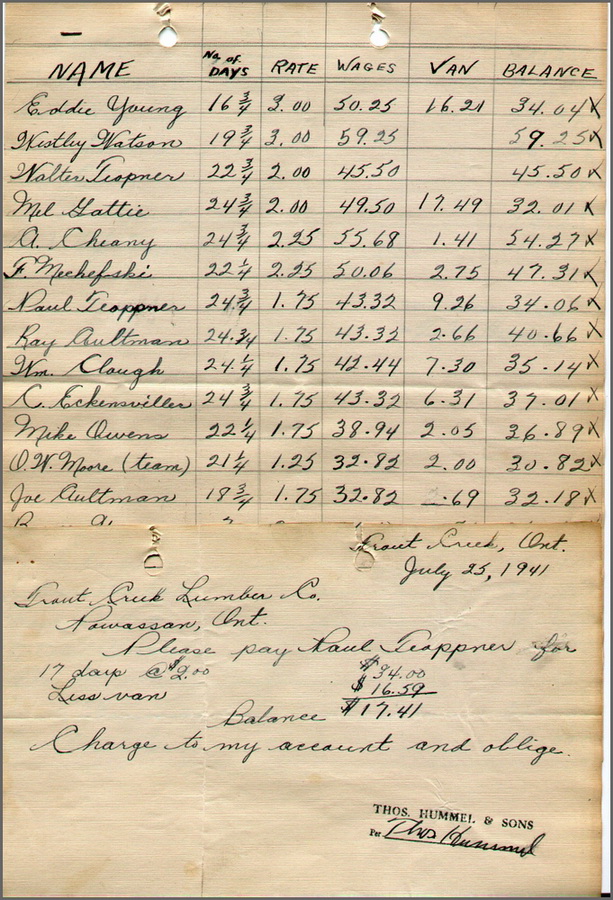 NAME No. of DAYS RATE WAGES VAN BALANCE
Eddie Young 16 3/4 3.00 50.25 16.21 34.04 X
Westley Watson 19 3/4 3.00 59.25 59.25 X
Walter Troppner 22 3/4 2.00 45.50 45.50 X
Mel Gattie 24 3/4 2.00 49.50 17.49 32.01 X
A. Cheany 24 3/4 2.25 55.68 1.41 54.27 X
F. Mechefski 22 1/4 2.25 50.06 2.75 47.31 X
Paul Troppner 24 3/4 1.75 43.32 9.26 34.06 X
Ray Aultman 24 3/4 1.75 43.32 2.66 40.66 X
Wm. Clough 24 1/4 1.75 42.44 7.30 35.14 X
C. Eckensviller 24 3/4 1.75 43.32 6.31 37.01 X
Mike Owens 22 1/4 1.75 38.94 2.05 36.89 X
O.W. Moore (team) 21 1/4 1.25 32.82 2.00 30.82 X
Joe Aultman 18 3/4 1.75 32.82 .69 32.18 X
Trout Creek, Ont.
July 25, 1941
Trout Creek Lumber Co.
Powassan, Ont.
Please pay Paul Troppner for
17 days @ $2.00 $34.00
Less van $16.59
Balance $17.41
Charge to my account and oblige.
THOS. HUMMEL & SONS
Per Thos Hummel